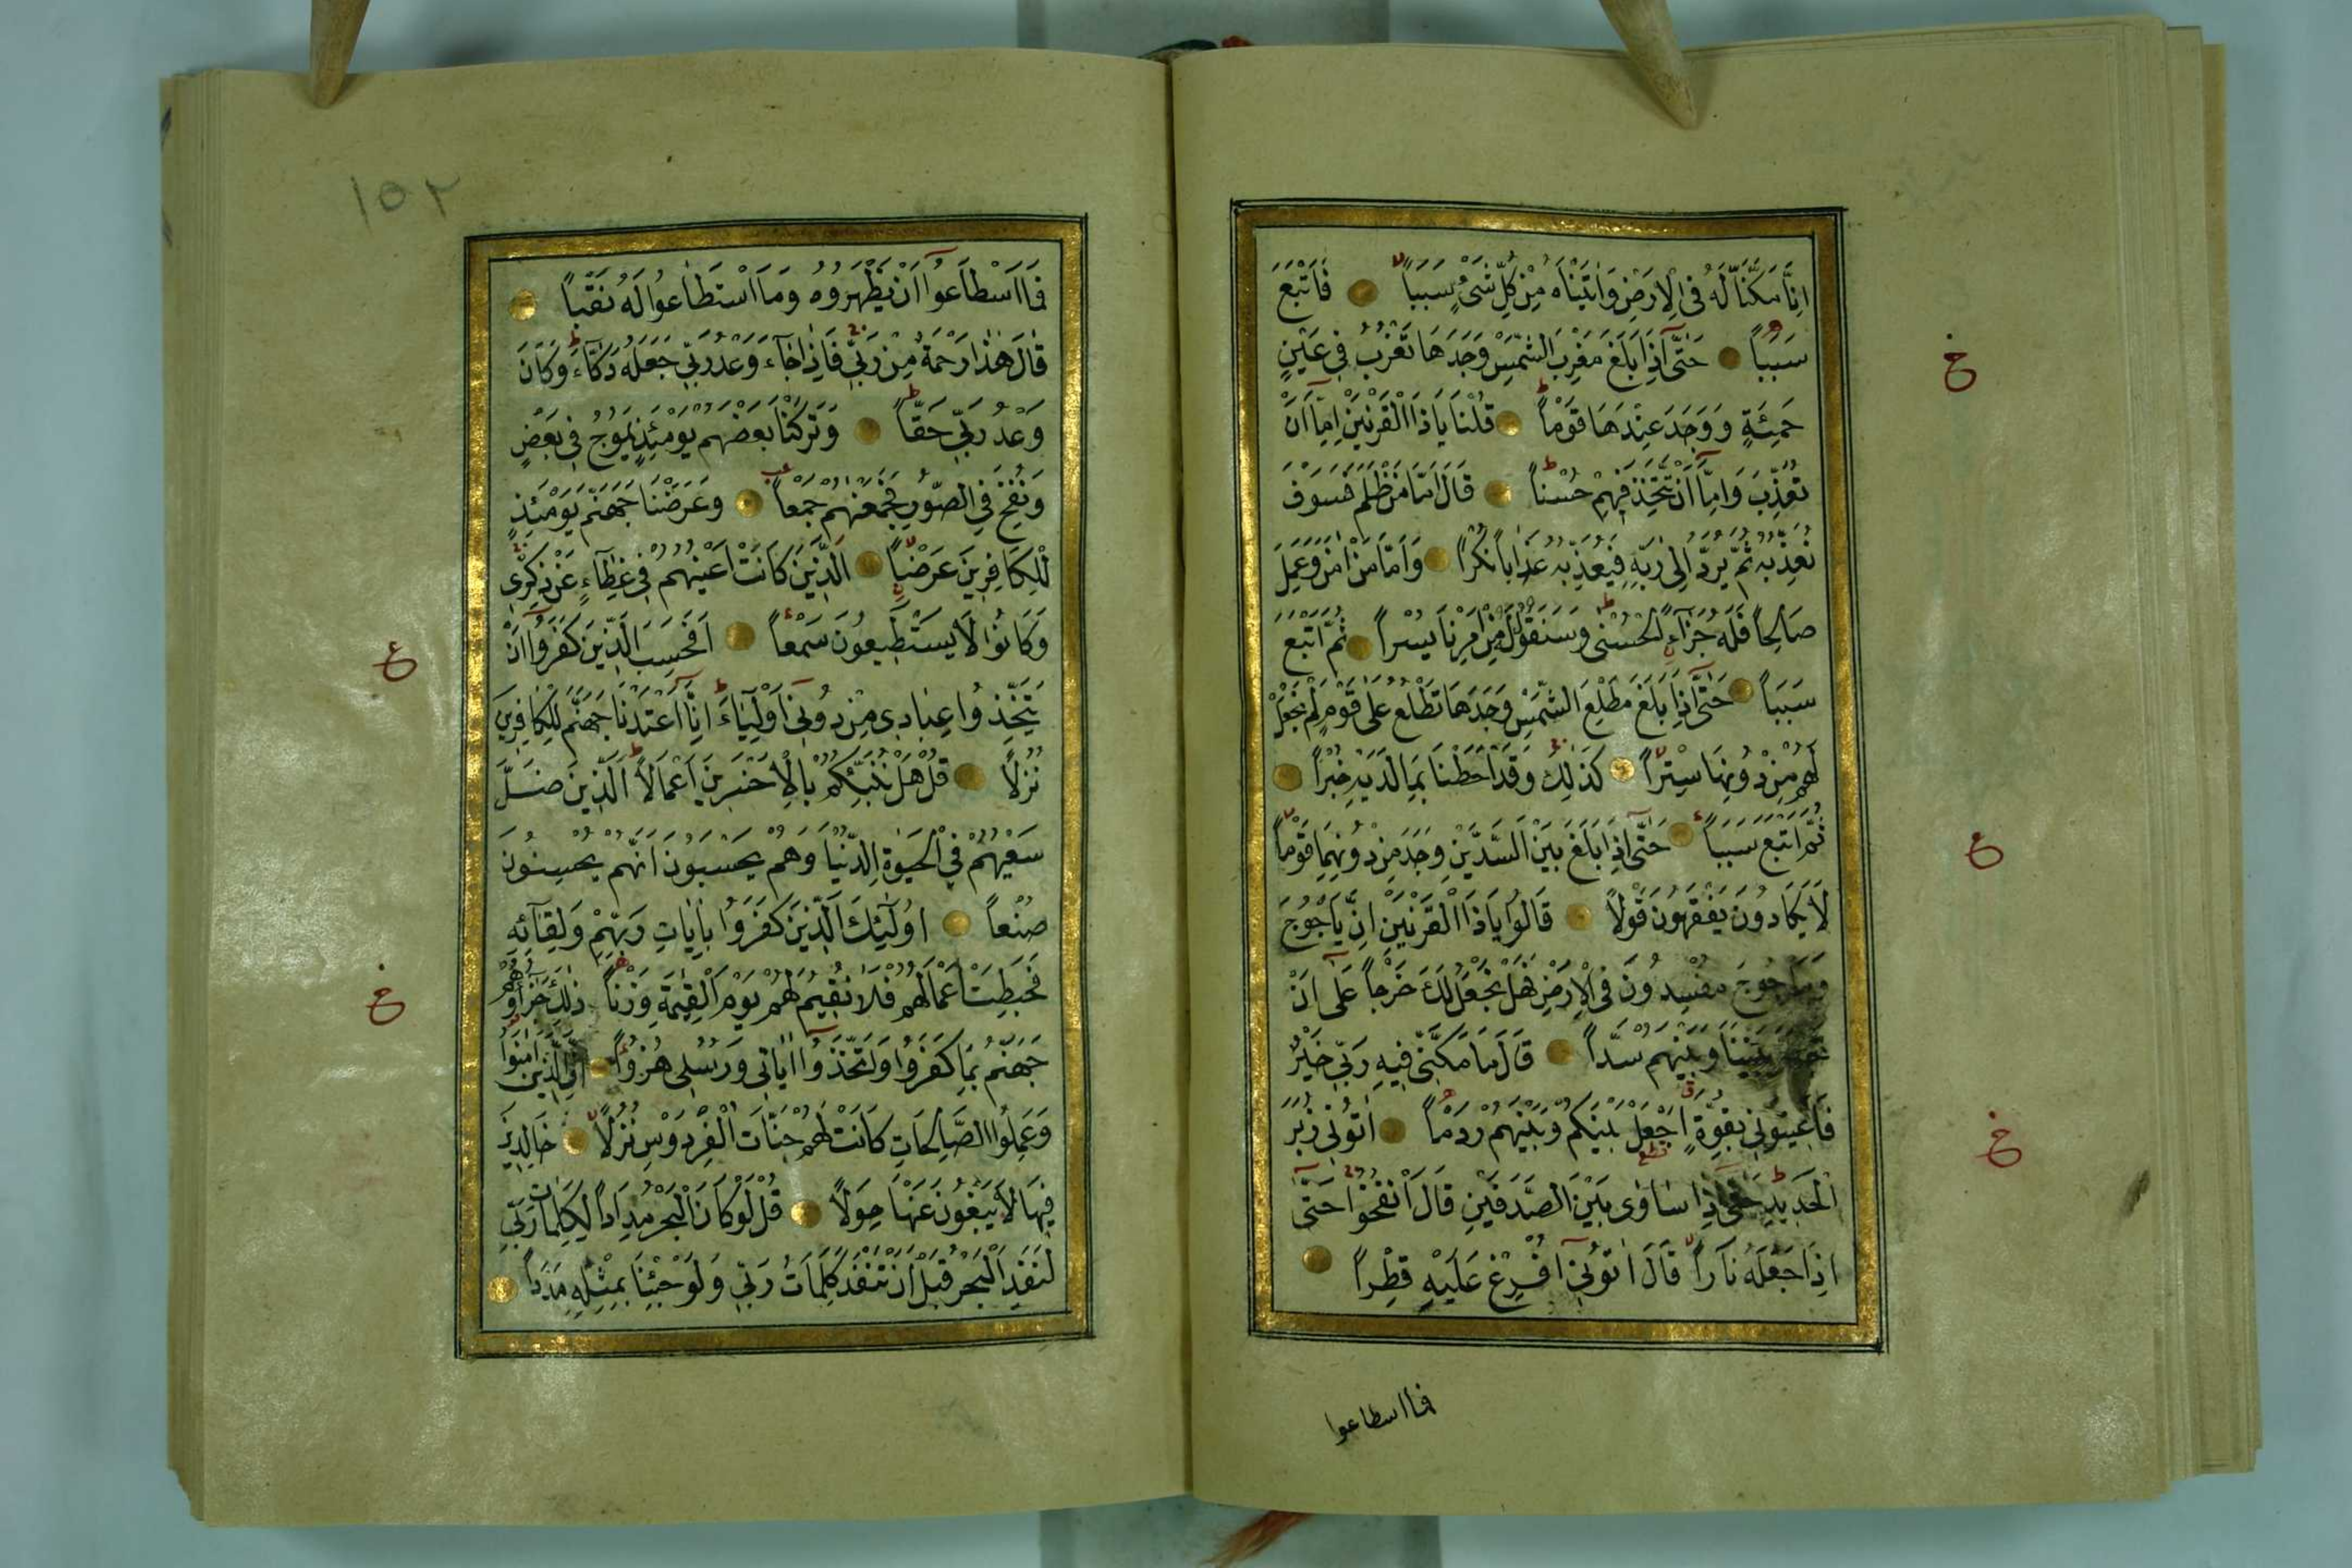 اِنَّا مَكَّنَّا لَهُ فِى الْاَرْضِ وَاٰتَيْنَاهُ مِنْ كُلِّ شَىْءٍ سَبَبًا فَاَتْبَعَ
سَبَبًا حَتّٰٓى اِذَا بَلَغَ مَغْرِبَ الشَّمْسِ وَجَدَهَا تَغْرُبُ فِى عَيْنٍ
حَمِئَةٍ وَوَجَدَ عِنْدَهَا قَوْمًا قُلْنَا يَا ذَا الْقَرْنَيْنِ اِمَّٓا اَنْ
تُعَذِّبَ وَاِمَّٓا اَنْ تَتَّخِذَ فِيهِمْ حُسْنًا قَالَ اَمَّا مَنْ ظَلَمَ فَسَوْفَ
نُعَذِّبُهُ ثُمَّ يُرَدُّ اِلٰى رَبِّهِ فَيُعَذِّبُهُ عَذَابًا نُكْرًا وَاَمَّا مَنْ اٰمَنَ وَعَمِلَ
صَالِحًا فَلَهُ جَزَٓاءً الْحُسْنٰى وَسَنَقُولُ لَهُ مِنْ اَمْرِنَا يُسْرًا ثُمَّ اَتْبَعَ
سَبَبًا حَتّٰٓى اِذَا بَلَغَ مَطْلِعَ الشَّمْسِ وَجَدَهَا تَطْلُعُ عَلٰى قَوْمٍ لَمْ نَجْعَلْ
لَهُمْ مِنْ دُونِهَا سِتْرًا كَذٰلِكَ وَقَدْ اَحَطْنَا بِمَا لَدَيْهِ خُبْرًا
ثُمَّ اَتْبَعَ سَبَبًا حَتّٰٓى اِذَا بَلَغَ بَيْنَ السَّدَّيْنِ وَجَدَ مِنْ دُونِهِمَا قَوْمًا
لَا يَكَادُونَ يَفْقَهُونَ قَوْلًا قَالُوا يَا ذَا الْقَرْنَيْنِ اِنَّ يَاْجُوجَ
وَمَاْجُوجَ مُفْسِدُونَ فِى الْاَرْضِ فَهَلْ نَجْعَلُ لَكَ خَرْجًا عَلٰٓى اَنْ
تَجْعَلَ بَيْنَنَا وَبَيْنَهُمْ سَدًّا قَالَ مَا مَكَّنِّى فِيهِ رَبِّى خَيْرٌ
فَاَعِينُونِى بِقُوَّةٍ اَجْعَلْ بَيْنَكُمْ وَبَيْنَهُمْ رَدْمًا اٰتُونِى زُبَرَ
الْحَدِيدِ حَتّٰٓى اِذَا سَاوٰى بَيْنَ الصَّدَفَيْنِ قَالَ انْفُخُوا حَتّٰٓى
اِذَا جَعَلَهُ نَارًا قَالَ اٰتُونِٓى اُفْرِغْ عَلَيْهِ قِطْرًا
فما اسطاعوا
١٥٢
فَمَا اسْطَاعُٓوا اَنْ يَظْهَرُوهُ وَمَا اسْتَطَاعُوا لَهُ نَقْبًا
قَالَ هٰذَا رَحْمَةٌ مِنْ رَبِّى فَاِذَا جَٓاءَ وَعْدُ رَبِّى جَعَلَهُ دَكَّٓاءَ وَكَانَ
وَعْدُ رَبِّى حَقًّا وَتَرَكْنَا بَعْضَهُمْ يَوْمَئِذٍ يَمُوجُ فِى بَعْضٍ
وَنُفِخَ فِى الصُّورِ فَجَمَعْنَاهُمْ جَمْعًا وَعَرَضْنَا جَهَنَّمَ يَوْمَئِذٍ
لِلْكَافِرِينَ عَرْضًا اَلَّذِينَ كَانَتْ اَعْيُنُهُمْ فِى غِطَٓاءٍ عَنْ ذِكْرِى
وَكَانُوا لَا يَسْتَطِيعُونَ سَمْعًا اَفَحَسِبَ الَّذِينَ كَفَرُٓوا اَنْ
يَتَّخِذُوا عِبَادِى مِنْ دُونِٓى اَوْلِيَٓاءَ اِنَّٓا اَعْتَدْنَا جَهَنَّمَ لِلْكَافِرِينَ
نُزُلًا قُلْ هَلْ نُنَبِّئُكُمْ بِالْاَخْسَرِينَ اَعْمَالًا اَلَّذِينَ ضَلَّ
سَعْيُهُمْ فِى الْحَيٰوةِ الدُّنْيَا وَهُمْ يَحْسَبُونَ اَنَّهُمْ يُحْسِنُونَ
صُنْعًا اُولٰٓئِكَ الَّذِينَ كَفَرُوا بِاٰيَاتِ رَبِّهِمْ وَلِقَٓائِهِ
فَحَبِطَتْ اَعْمَالُهُمْ فَلَا نُقِيمُ لَهُمْ يَوْمَ الْقِيٰمَةِ وَزْنًا ذٰلِكَ جَزَٓاؤُهُمْ
جَهَنَّمُ بِمَا كَفَرُوا وَاتَّخَذُٓوا اٰيَاتِى وَرُسُلِى هُزُوًا اِنَّ الَّذِينَ اٰمَنُوا
وَعَمِلُوا الصَّالِحَاتِ كَانَتْ لَهُمْ جَنَّاتُ الْفِرْدَوْسِ نُزُلًا خَالِدِينَ
فِيهَا لَا يَبْغُونَ عَنْهَا حِوَلًا قُلْ لَوْ كَانَ الْبَحْرُ مِدَادًا لِكَلِمَاتِ رَبِّى
لَنَفِدَ الْبَحْرُ قَبْلَ اَنْ تَنْفَدَ كَلِمَاتُ رَبِّى وَلَوْ جِئْنَا بِمِثْلِهِ مَدَدًا